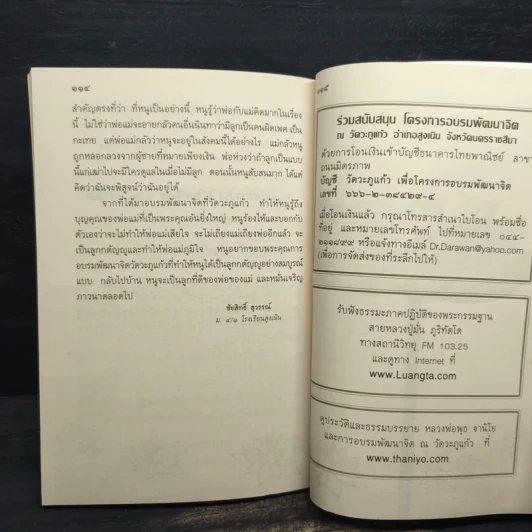 ๑๑๔
สำคัญตรงที่ว่า ที่หนูเป็นอย่างนี้ หนูรู้ว่าพ่อกับแม่คิดมากในเรื่อง
นี้ ไม่ใช่ว่าพ่อแม่จะอายกลัวคนอื่นนินทาว่ามีลูกเป็นคนผิดเพศ เป็น
กะเทย แต่พ่อแม่กลัวว่าหนูจะอยู่ในสังคมนี้ได้อย่างไร แม่กลัวหนู
ถูกหลอกลวงจากผู้ชายที่หมายเพียงเงิน พ่อห่วงว่าถ้าลูกเป็นแบบ
นี้แก่เฒ่าไปจะมีใครดูแลในเมื่อไม่มีลูก ตอนนั้นหนูสับสนมาก ได้แต่
คิดว่าฉันจะพิสูจน์ว่าฉันอยู่ได้
จากที่ได้มาอบรมพัฒนาจิตที่วัดวะภูแก้ว ทำให้หนูรู้ถึง
บุญคุณของพ่อแม่ที่เป็นพระคุณอันยิ่งใหญ่ หนูร้องไห้และบอกกับ
ตัวเองว่าจะไม่ทำให้พ่อแม่เสียใจ จะไม่เถียงแม่เถียงพ่ออีกแล้ว จะ
เป็นลูกกตัญญูและทำให้พ่อแม่ภูมิใจ หนูอยากขอบพระคุณการ
อบรมพัฒนาจิตวัดวะภูแก้วที่ทำให้หนูได้เป็นลูกกตัญญูอย่างสมบูรณ์
แบบ กลับไปบ้าน หนูจะเป็นลูกที่ดีของพ่อของแม่ และหมั่นเจริญ
ภาวนาตลอดไป
ชัยสิทธิ์ สุวรรณ์
ม. ๔/๒ โรงเรียนสูงเนิน
ร่วมสนับสนุน โครงการอบรมพัฒนาจิต
ณ วัดวะภูแก้ว อำเภอสูงเนิน จังหวัดนครราชสีมา
ด้วยการโอนเงินเข้าบัญชีธนาคารไทยพาณิชย์ สาขา
ถนนมิตรภาพ
บัญชี วัดวะภูแก้ว เพื่อโครงการอบรมพัฒนาจิต
เลขที่ ๖๖๖-๒-๓๔๔๒๙-๔
เมื่อโอนเงินแล้ว กรุณาโทรสารสำเนาใบโอน พร้อมชื่อ
ที่อยู่ และหมายเลขโทรศัพท์ ไปที่หมายเลข ๐๔๔-
๒๑๑๔๙๙ หรือแจ้งทางอีเมล์ Dr.Darawan@yahoo.com
(เพื่อการจัดส่งของที่ระลึกไปให้)
รับฟังธรรมะภาคปฏิบัติของพระกรรมฐาน
สายหลวงปู่มั่น ภูริทัตโต
ทางสถานีวิทยุ FM 103.25
และดูทาง Internet ที่
www.Luangta.com
ดูประวัติและธรรมบรรยาย หลวงพ่อพุธ ฐานิโย
และการอบรมพัฒนาจิต ณ วัดวะภูแก้ว ที่
www.thaniyo.com